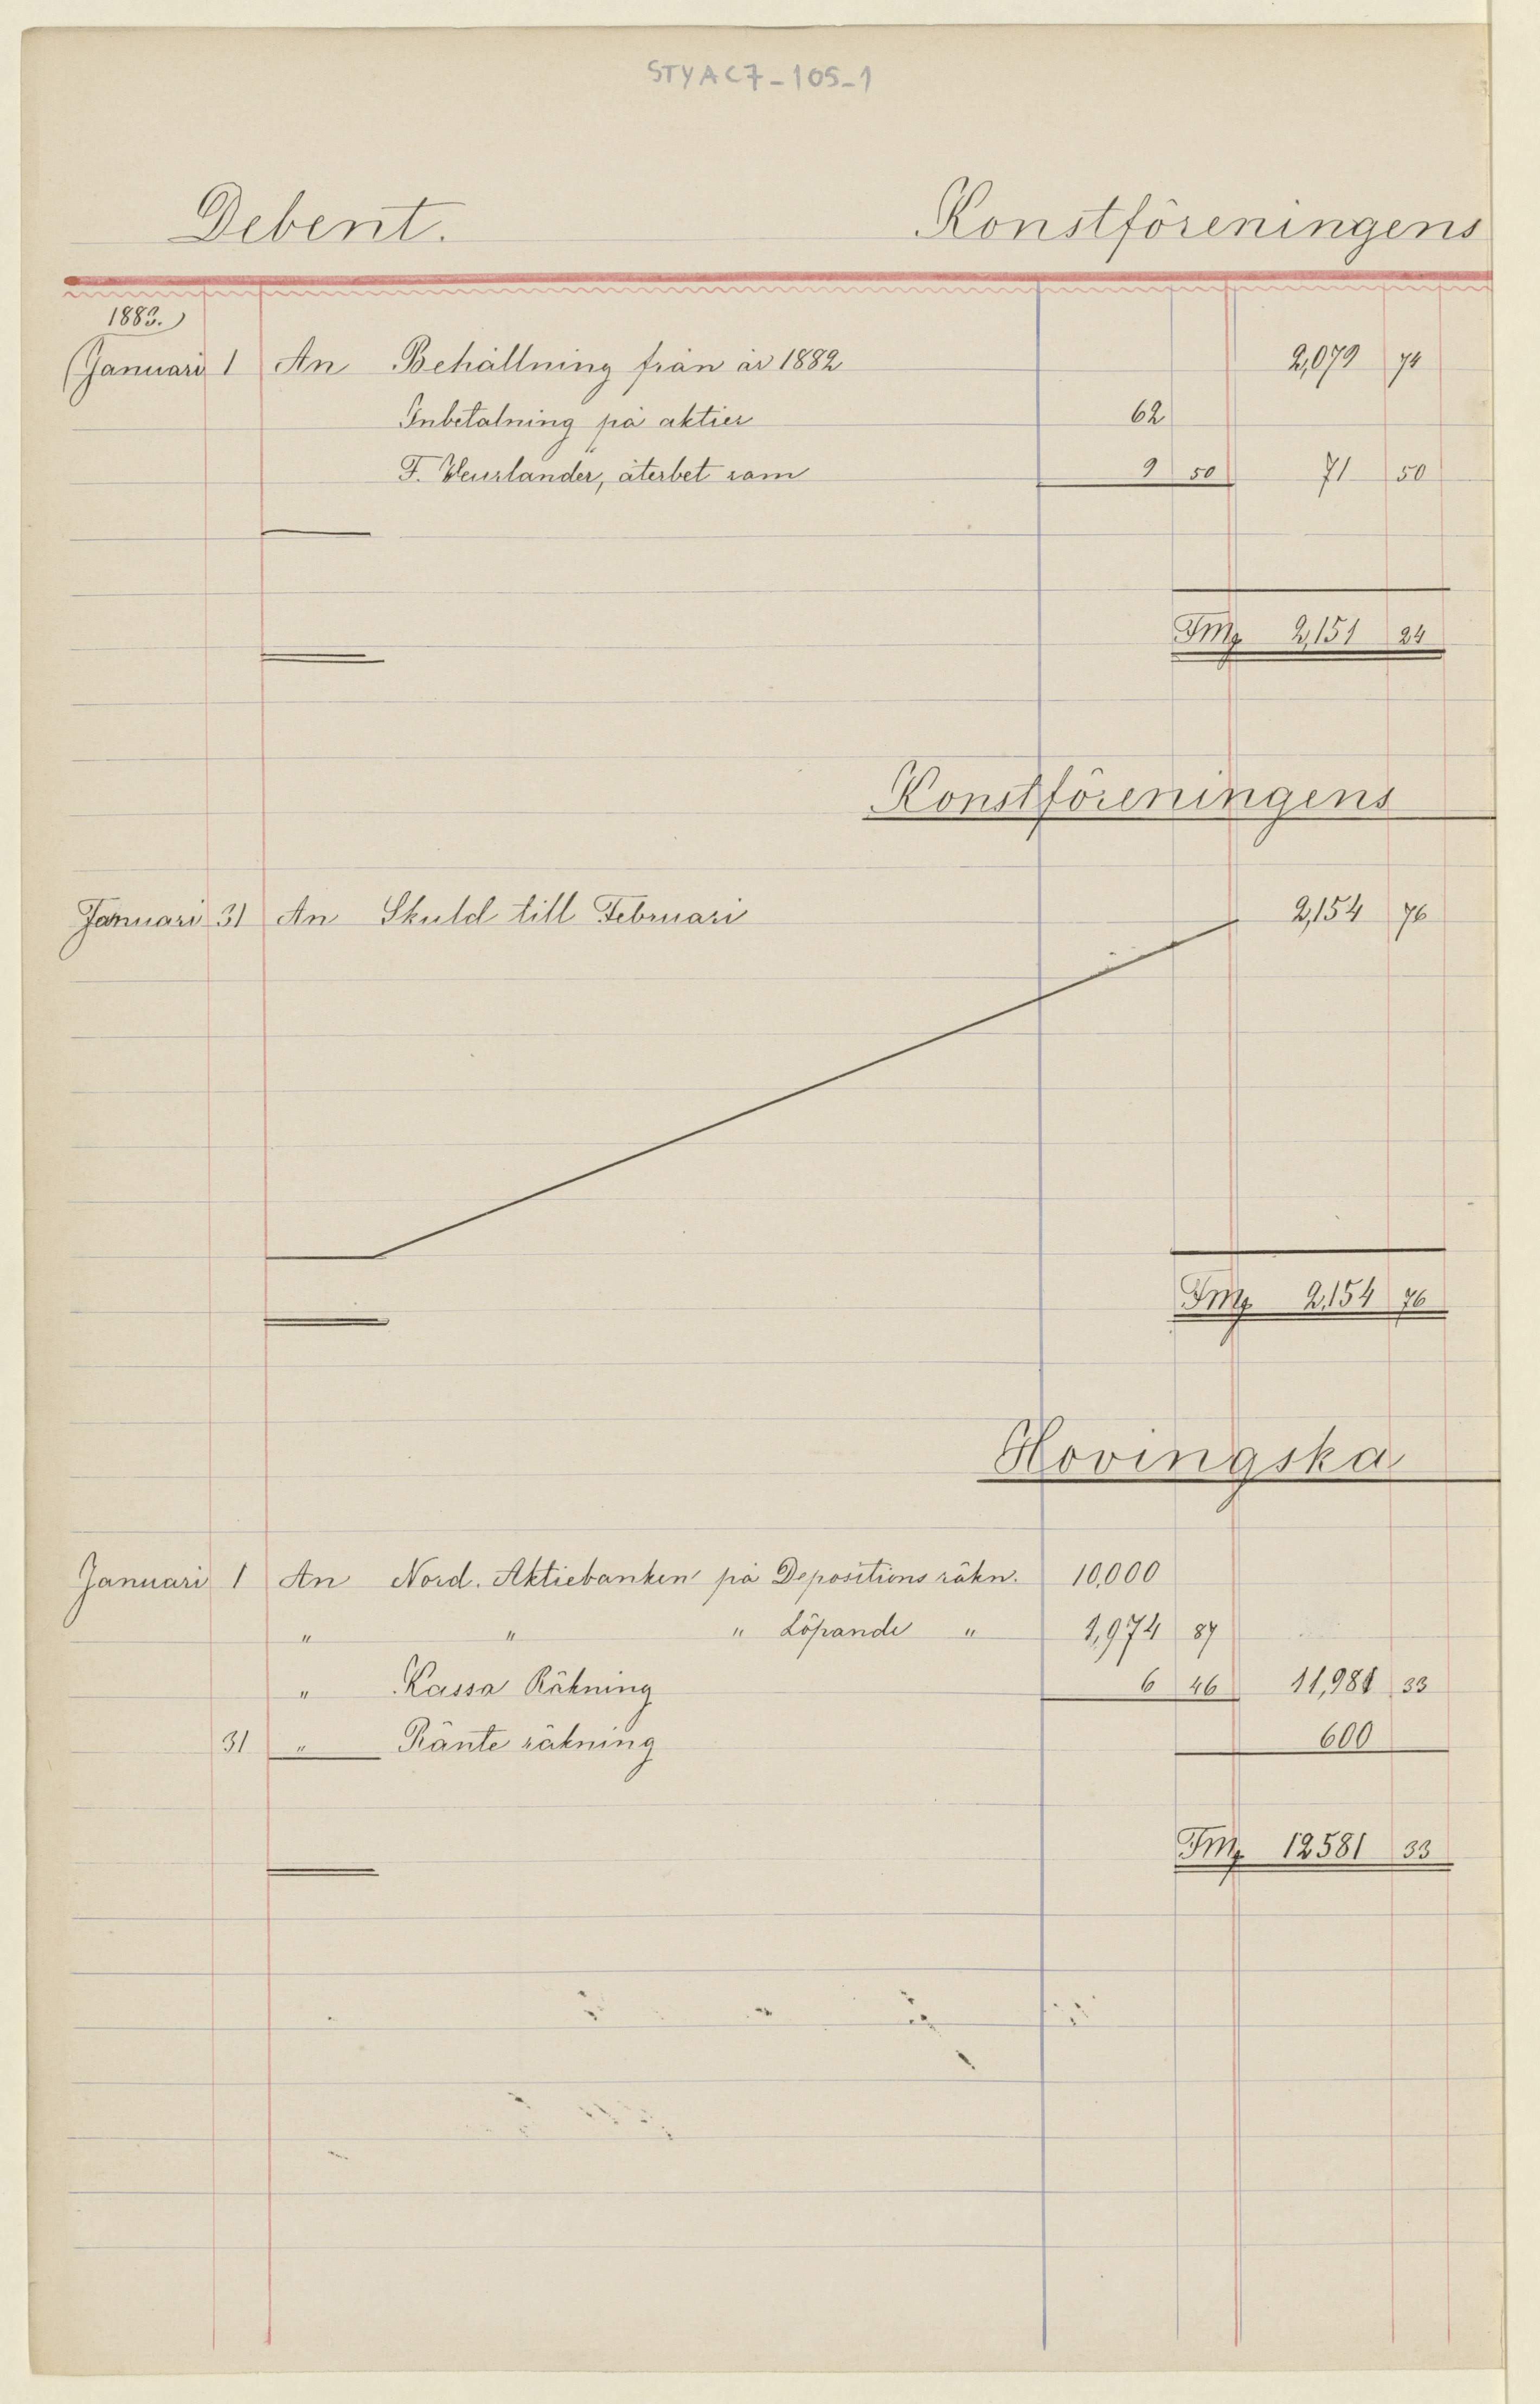 STYAC7-105-1
Debent. Konstföreningens
1883.
Januari 1 An Behållning från år 1882 2,079 74
Inbetalning på aktier 62
F. Heurlander, återbet ram 9 50 71 50
Fmk 2,151 24
Konstföreningens
Januari 31 An Skuld till Februari 2,154 76
Fmk 2,154 76
Hovingska
Januari 1 An Nord. Aktiebanken på Depositions räkn. 10,000
" " " Löpande " 1,974 87
" Kassa Räkning 6 46 11,981 33
31 " Ränte räkning 600
Fmk 12581 33